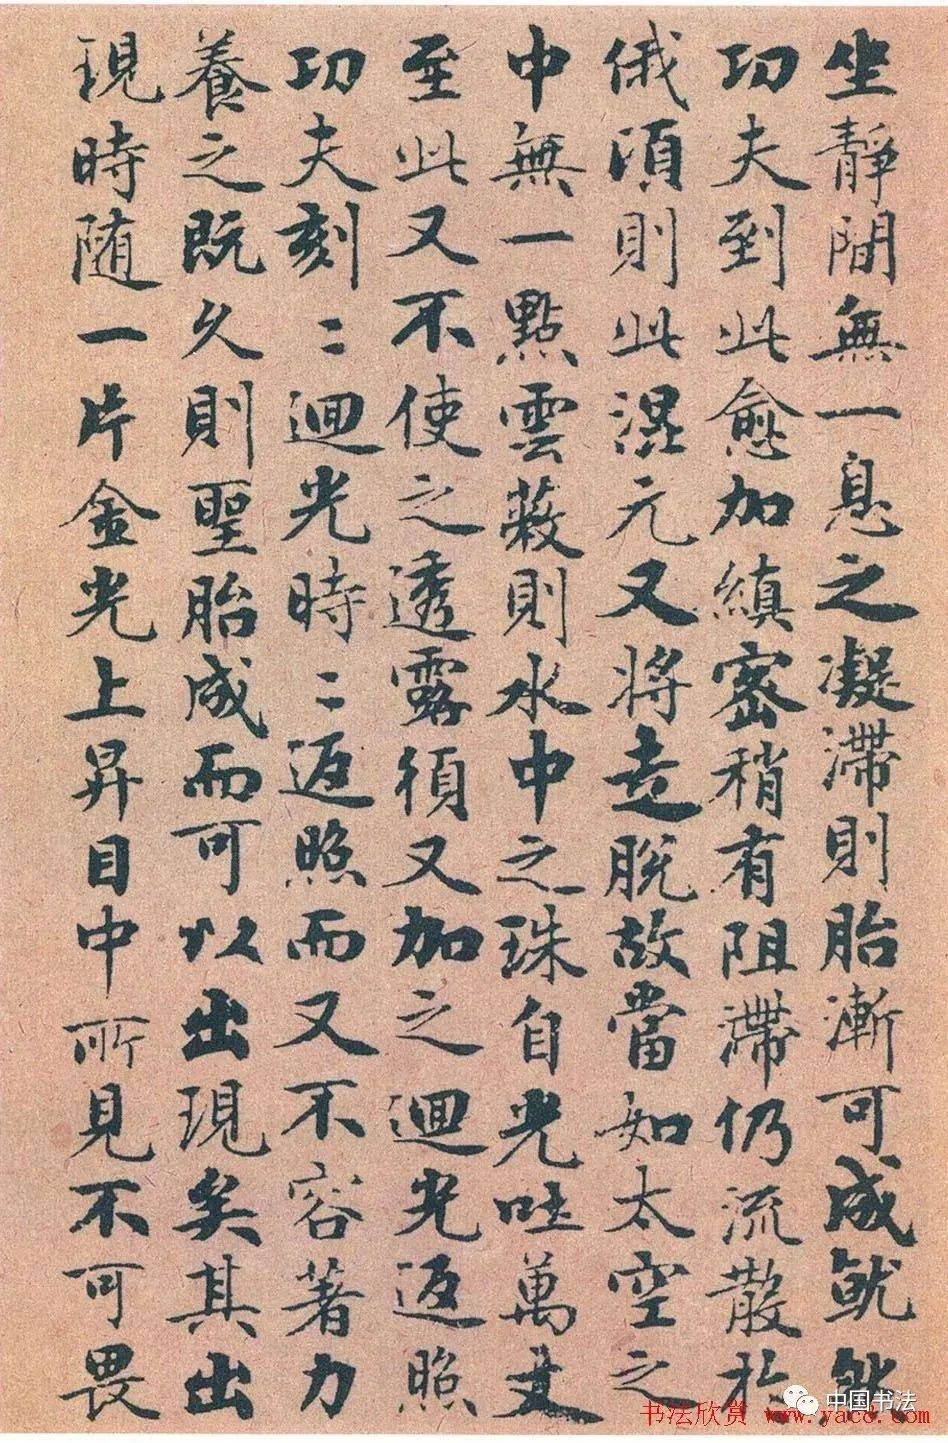 坐靜間無一息之凝滯則胎漸可成就然
功夫到此愈加縝密稍有阻滯仍流散於
俄須則此混元又將走脫故當如太空之
中無一點雲蔽則水中之珠自光吐萬丈
至此又不使之透露須又加之迴光返照
功夫刻〻迴光時〻返照而又不容著力
養之既久則聖胎成而可以出現矣其出
現時随一片金光上昇目中所見不可畏
中国书法
书法欣赏 www.yac8.com